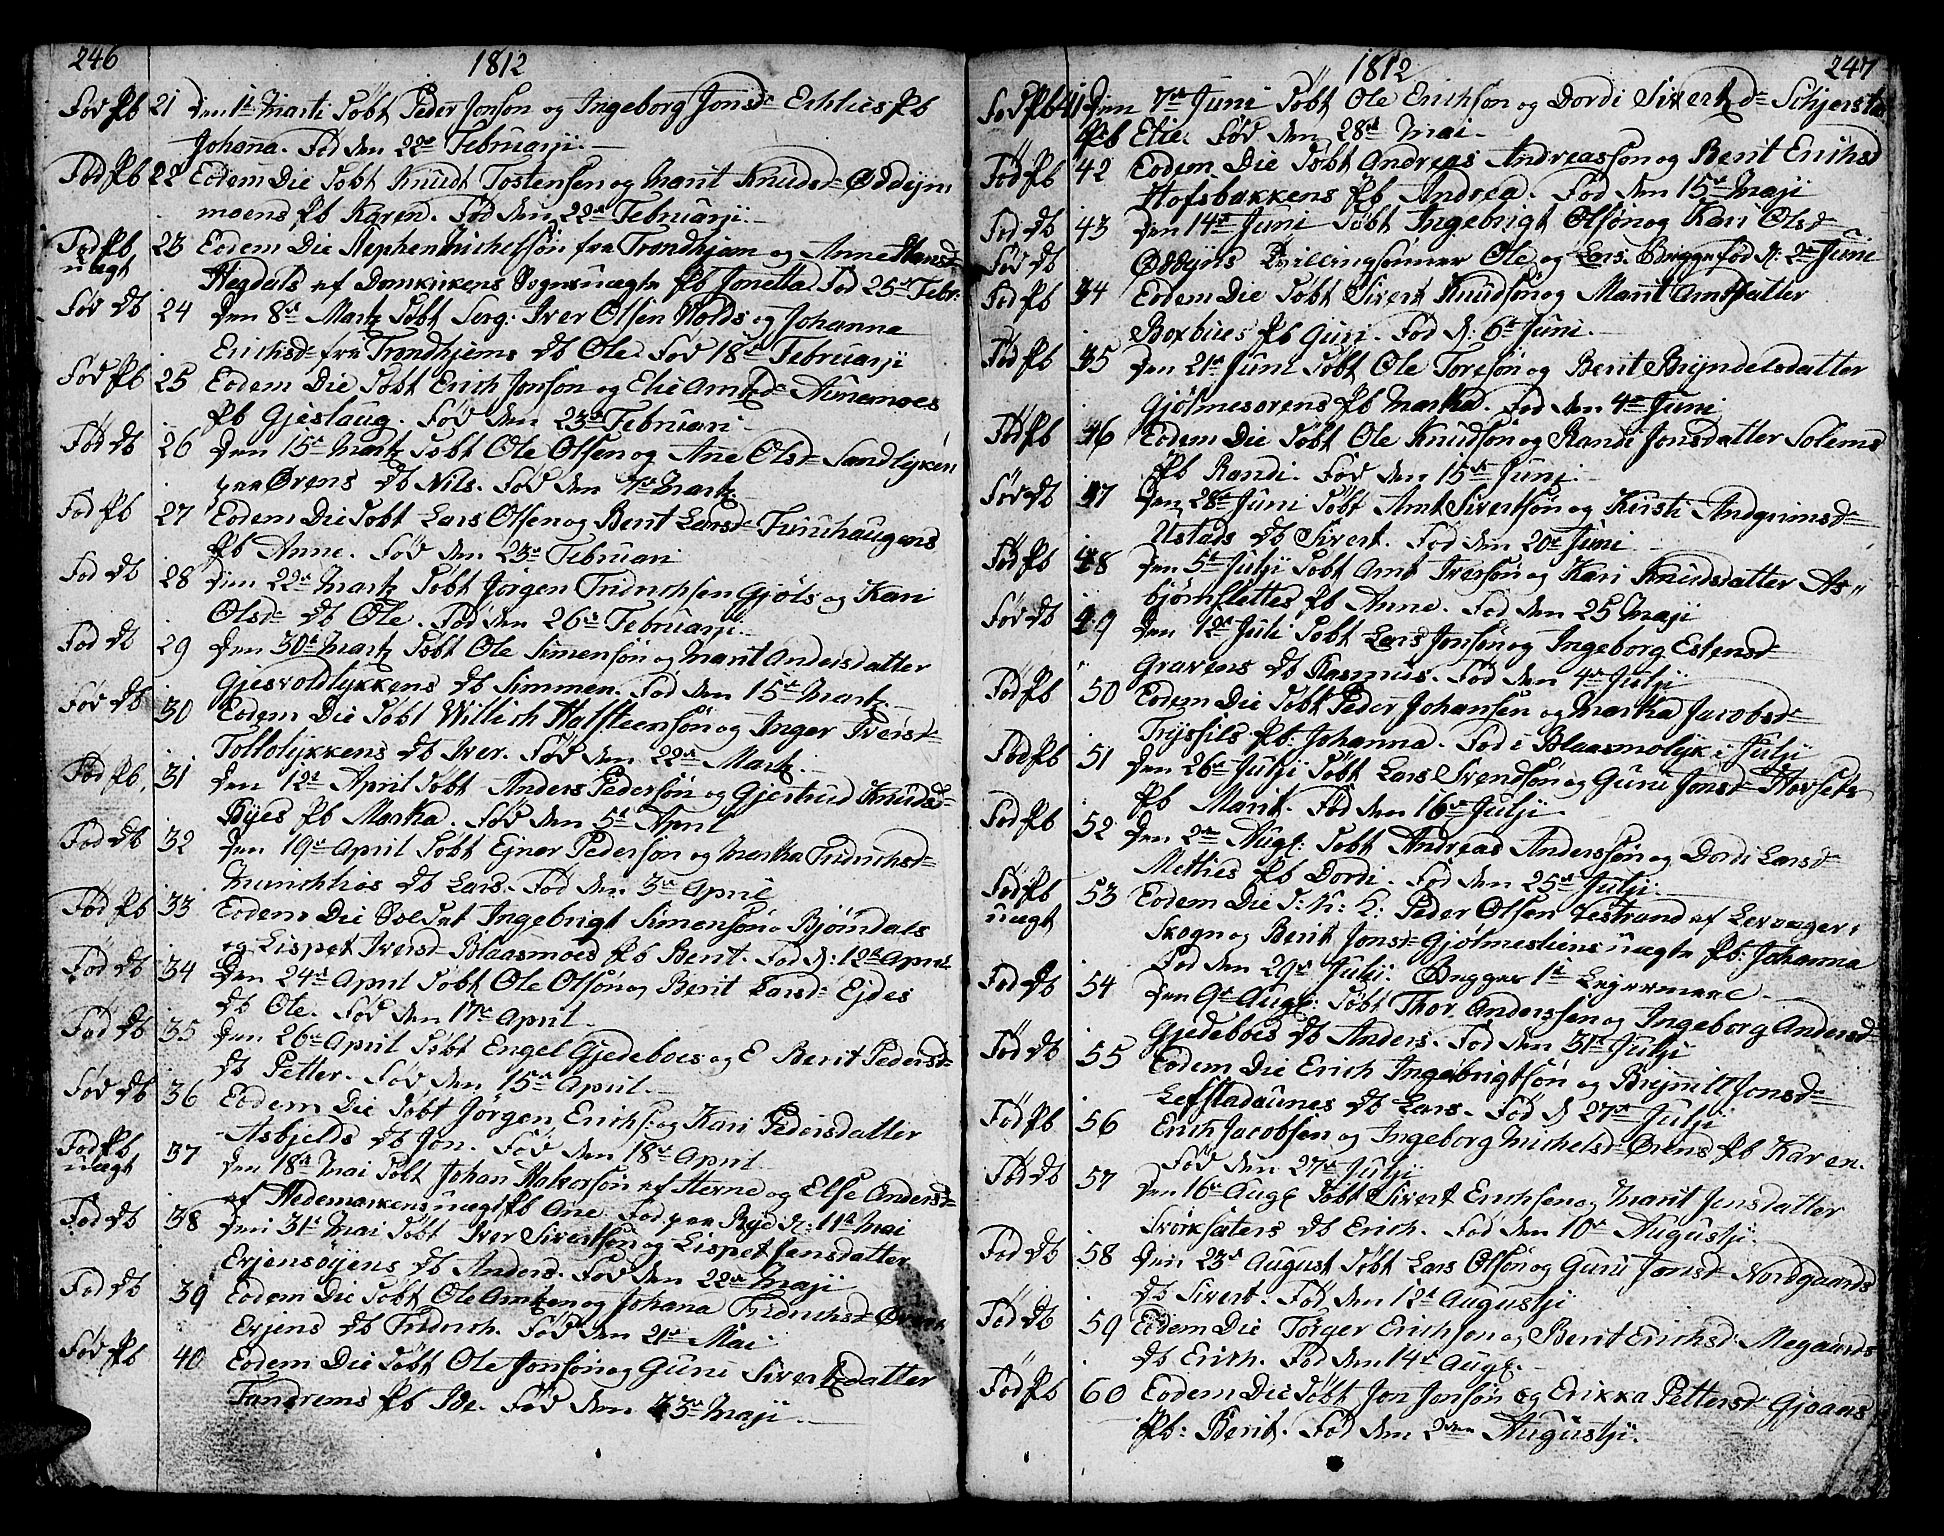 246
1812
Fød Pb 21 Den 1ste Marti Døbt Peder Jonsøn og Ingeborg Jonsd: Echlies Pb
Johana. Fød den 22de Februarji.
Fød Pb 22 Eodem Die Døbt Knudt Tostensen og Marit Knudsd: Øddeyn
moens Pb Karen. Fød den 22de Februarji.
Fød Pb 23 Eodem Die Stephen Michelsøn fra Trondhjem og Anne Hansd:
uægt Hegdals af Domkirkens Sogn uægte Pb Jonetta. Fød 25de Febr:
Fød Db 24 Den 8de Martz Døbt Serg: Iver Olsen Wolds og Johanna
Erichsd: fra Trondhjems Db Ole. Fød 18de Februarji
Fød Pb 25 Eodem Die Døbt Erich Jonsøn og Elie Amtsd: Aunemoes
Pb Gjeslaug. Fød den 23de Februari
Fød Db 26 Den 15de Martz Døbt Ole Olsen og Ane Olsd: Sandlykken
paa Ørens Db Nils. Fød den 7de Martz
Fød Pb 27 Eodem Die Døbt Lars Olsen og Berit Larsd: Furuhaugens
Pb Anne. Fød den 23de Februari
Fød Db 28 Den 22de Martz Døbt Jørgen Fridrichsen Gjøls og Kari
Olsd: Db Ole. Fød den 26de Februarji.
Fød Db 29 Den 30te Martz Døbt Ole Simensøn og Marit Andersdatter
Gjesvoldlykkens Db Simmen. Fød den 15de Martz
Fød Db 30 Eodem Die Døbt Willich Halfsteensøn og Inger Iversd:
Tollolykkens Db Iver. Fød den 22de Martz.
Fød Pb 31 Den 12te April Døbt Anders Pedersøn og Gjertrud Knudsd:
Byes Pb Marka. Fød den 5te April
Fød Db 32 Den 19de April Døbt Ejner Pedersøn og Marka Fridrichsd:
Db Lars. Fød den 3de April
Fød Pb 33 Eodem Die Soldat Ingebrigt Simensøn Bjørndals
og Lispet Iversd: Blaasmoed Pb Berit. Fød d: 12te April
Fød Db 34 Den 24de April Døbt Ole Olsøn og Berit Larsd: Ejdes
Db Ole. Fød den 17de April
Fød Db 35 Den 26de April Døbt Engel Gjedeboes og E Berit Pedersd:
Db Petter. Fød den 15de April.
Fød Db 36 Eodem Die Døbt Jørgen Erichs: og Kari Pedersdatter
Asbjelds Db Jon. Fød den 18de April
Fød Pb 37 Den 18de Mai Døbt Johan Hakersøn af Herne og Else Andersd:
uægt af Hedemarken uægt Pb Ane. Fød paa Bye d: 11te Mai
Fød Db 38 Den 31te Mai Døbt Iver Sivertsøn og Lispet Jensdatter
Erjensøyens Db Anders. Fød den 22de Maji
Fød Db 39 Eodem Die Døbt Ole Amtsen og Johana Fridrichsd:
Evjens Db Fridrich. Fød den 21de Mai
Fød Pb 40 Eodem Die Døbt Ole Jonsøn og Guru Sivertsdatter
Tandrems Pb Ide. Fød den 23de Maji.
1812
247
Fød Pb 41 Den 7de Juni Døbt Ole Erichsøn og Dordi Sivertzd: Schjersta
Pb Elie. Fød den 28de Mai.
Fød Pb 42 Eodem Die Døbt Andreas Andreassøn og Berit Erichsd
Hofsbakkens Pb Andrea. Fød den 15de Maji
Fød Db 43 Den 14de Juni Døbt Ingebrigt Olsøn og Kari Olsd:
Fød Db Øddyns Tvillingsønner Ole og Lars. Begge fød d: 2de Juni
Fød Pb 44 Eodem Die Døbt Sivert Knudsøn og Marit Amtsdatter
Boxbues Pb Guri. Fød d: 6te Juni.
Fød Pb 45 Den 21de Juni Døbt Ole Toresøn og Berit Bryndelsdatter
Gjølmesørens Pb Marka. Fød den 4de Juni
Fød Pb 46 Eodem Die Døbt Ole Knudsøn og Randi Jonsdatter Solems
Pb Randi. Fød den 15de Juni
Fød Db 47 Den 28de Juni Døbt Amt Sivertsøn og Kirsti Andgrimsd:
Ustads Db Sivert. Fød den 20de Juni
Fød Pb 48 Den 5te Julji Døbt Amt Iversøn og Kari Knudsdatter As"
bjørnslettes Pb Anne. Fød den 25 Maji
Fød Db 49 Den 12te Juli Døbt Lars Jonsøn og Ingeborg Estensd:
Gravens Db Rasmus. Fød den 4de Julji
Fød Pb 50 Eodem Die Døbt Peder Johansen og Marka Jacobsd:
Tryssils Pb. Johanna. Fød i Blaasmolyk i Julji
Fød Pb 51 Den 26de Julji Døbt Lars Svendsøn og Guru Jonsd: Hovsets
Pb Marit. Fød den 16de Julji
Fød Pb 52 Den 2den Aug: Døbt Andreas Anderssøn og Dordi Larsd:
Metlies Pb Dordi. Fød den 25de Julji.
Fød Pb 53 Eodem Die D: N: L: Peder Olsen Festrand af Levanger
uægt Skogn og Berit Jonsd: Gjølmesliens uægte Pb: Johanna
Fød den 29de Julji. Begges 1te Lejermaal.
Fød Db 54 Den 9de Aug: Døbt Thor Anderssen og Ingeborg Andersd:
Gjedeboes Db Anders. Fød den 31te Julji
Fød Db 55 Eodem Die Erich Ingebrigtsøn og Brynnill Jonsd:
Lefstadaunes Db Lars. Fød d 27de Julji
Fød Pb 56 Erich Jacobsen og Ingeborg Michelsd: Ørens Pb Karen.
Fød den 27de Julji
Fød Db 57 Den 16de Aug: Døbt Sivert Erichsen og Marit Jonsdatter
Svorksæters Db Erich. Fød den 10de Augustji.
Fød Db 58 Den 23de August Døbt Lars Olsøn og Guru Jonsd: Nordgaards
Db Sivert. Fød den 12te Augustji
Fød Db 59 Eodem Die Torger Erichsøn og Berit Erichsd: Megaards
Db Erich. Fød den 14de Aug:
Fød Pb 60 Eodem Die Døbt Jon Jonsøn og Erikka Pettersd: Gjoaas
Pb: Berit. Fød den 2den Augustji.